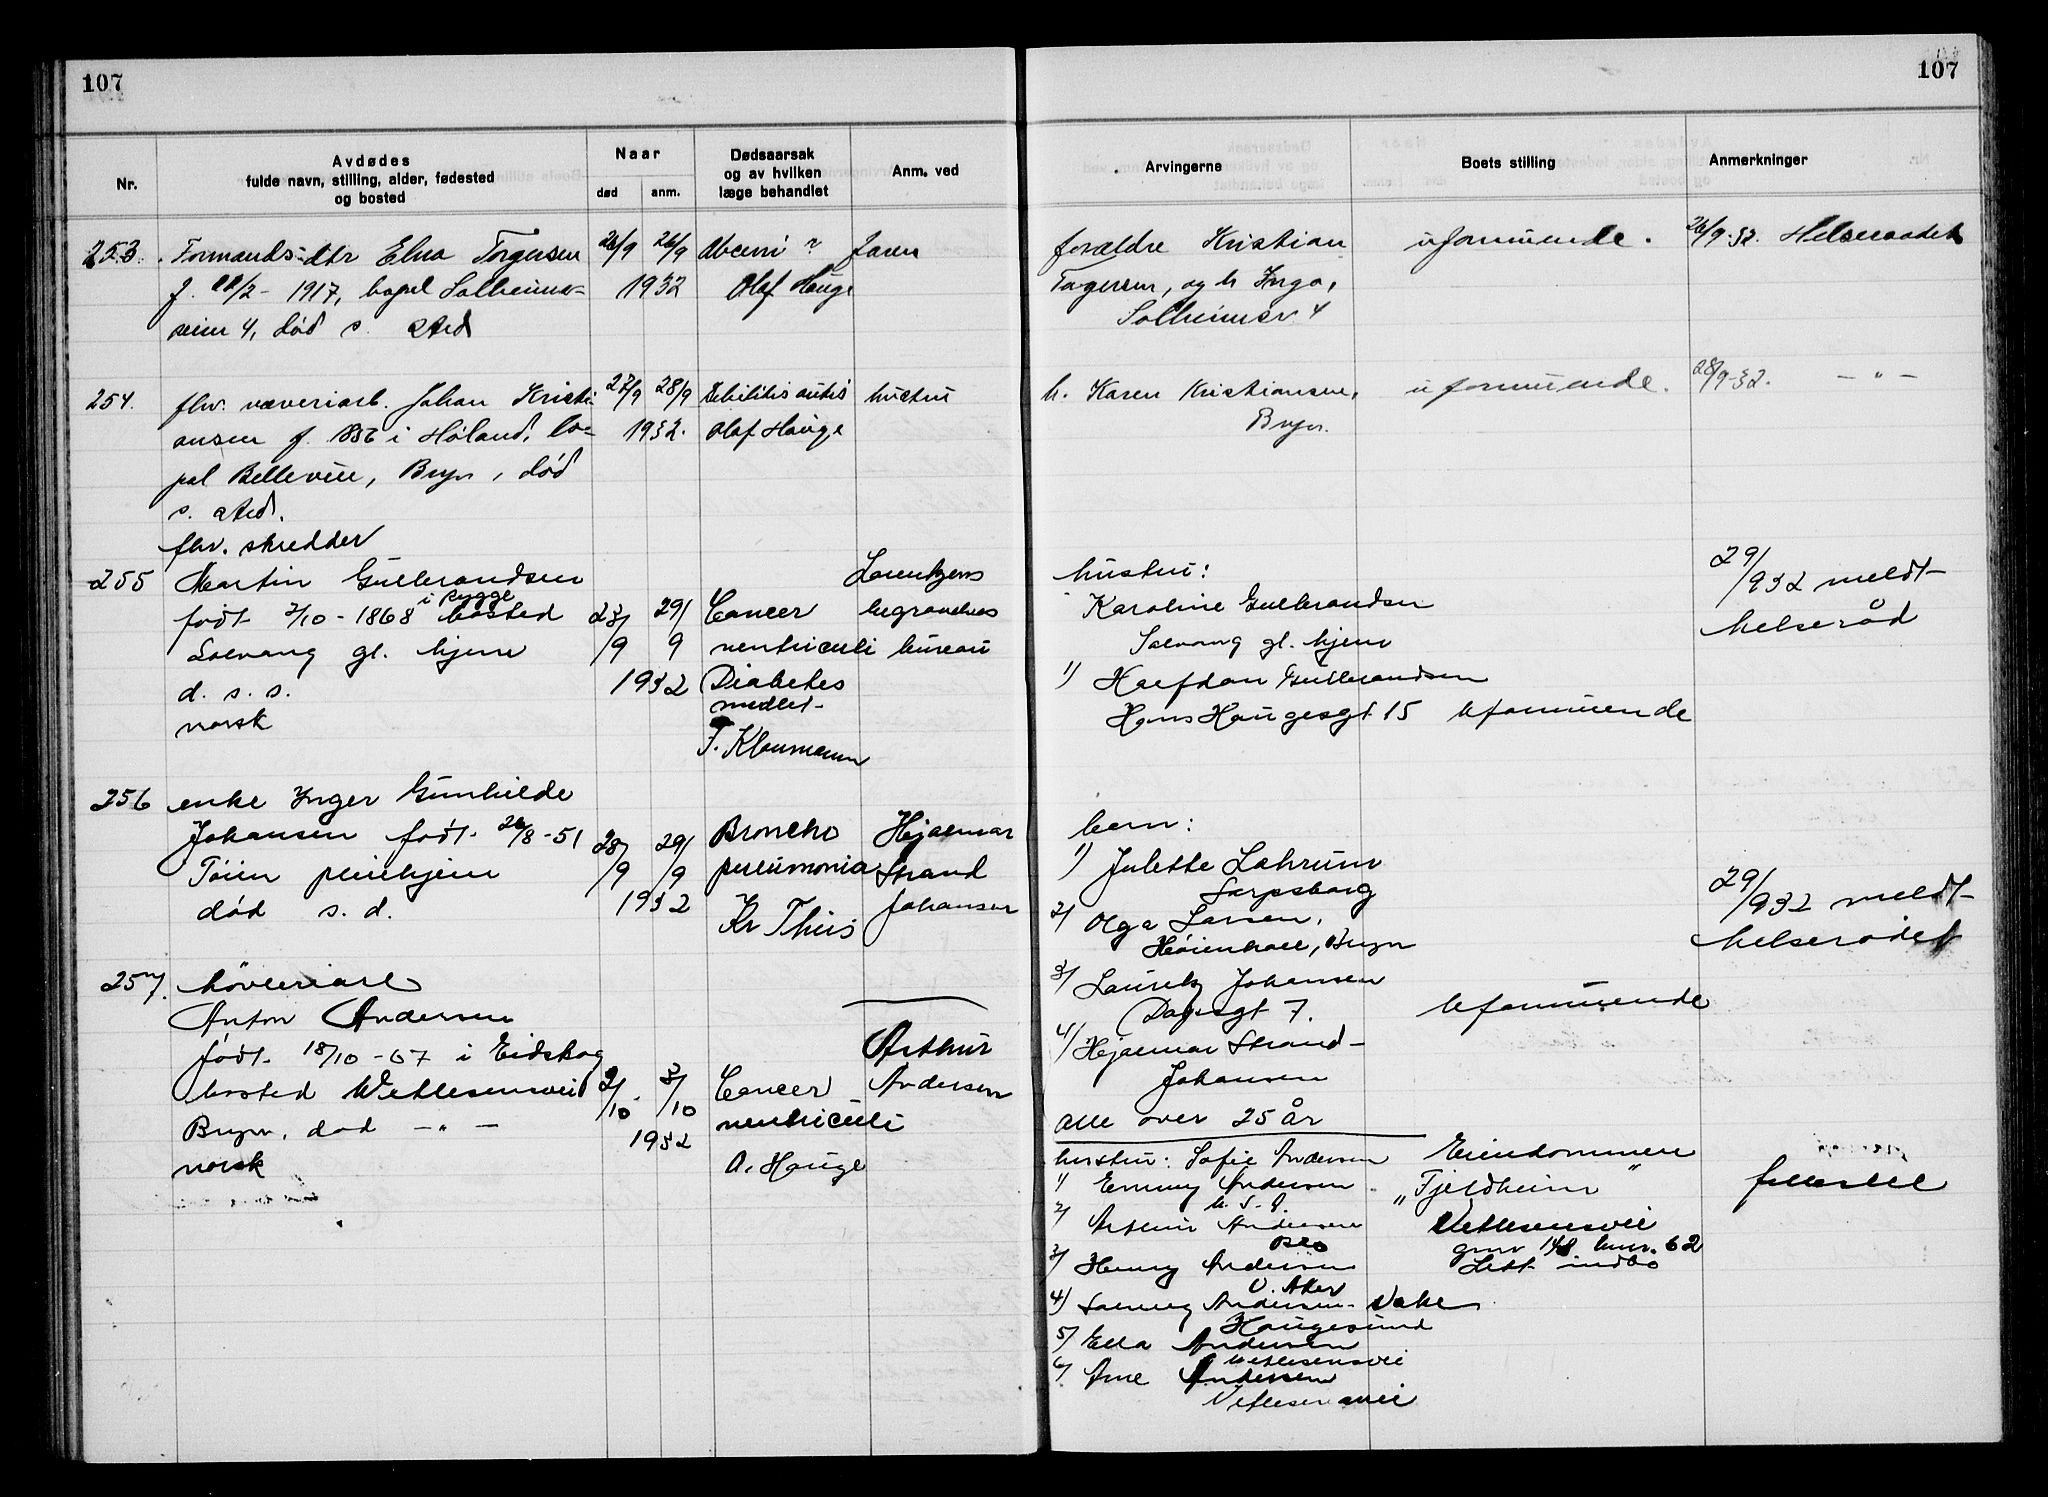 107
107
Nr.
Avdødes
fulde navn, stilling, alder, fødested
og bosted
Naar
død
anm.
Dødsaarsak
og av hvilken
læge behandlet
Anm. ved
Arvingerne
Boets stilling
Anmerkninger
253. Formands dtr Elna Torgersen
f. 22/2 - 1917, bopæl Solheims-
veien 4, død s. sted
26/9 26/9
1932
?
Olaf Hauge
faren
forældre Kristian
Torgersen, og h. Inga,
Solheimsv. 4
uformuende.
26/9-32. Helseraadet
254. fhv. væveriarb. Johan Kristi-
ansen f. 1856 i Høland, bo-
pæl Bellevue, Bryn, død
s. sted.
27/9 28/9
1932.
Debilitis
Olaf Hauge
hustru
h. Karen Kristiansen,
Bryn.
uformuende.
28/9-32. - " -
fhv. skredder
255 Martin Gulbrandsen
født 2/10 - 1868 i Rygge bosted
Solvang gl. hjem
d. s. s.
norsk
23/9 29/9
1932
Cancer
ventriculi
Diabetes
mellet-
F. Klaumann
Lorentzens
begravelses
bureau
hustru:
Karoline Gulbrandsen
Solvang gl. hjem
1) Halfdan Gulbrandsen
Hans Haugesgt 15
Uformuende
29/9 32 meldt
helseråd
256 enke Inger Gunhilde
Johansen født 26/8 - 51
Tøien pleiehjem
død s. d.
28/9 29/9
1932
Broncho
pneumonia
Kr Thiis
Hjalmar
Strand
Johansen
barn:
1) Julette Lahrum
Sarpsborg
2) Olga Larsen,
Høienhall, Bryn
3) Lauritz Johansen
Dalsgt 7.
4) Hjalmar Strand-
Johansen
alle over 25 år
Uformuende
29/9 32 meldt
helserådet
257. høvleriarb
Anton Andersen
født 18/10 - 67 i Eidskog
bosted Wetlesensvei
Bryn, død - " -
norsk
2/10 3/10
1932
Cancer
ventriculi
O. Hauge
Arthur
Andersen
hustru: Sofie Andersen
1) Emmy Andersen
U. S. A.
2) Arthur Andersen
3) Henry Andersen
Ø. Aker
4) Solveig Andersen
Haugesund
5) Ella Andersen
Wetlesensvei
6) Arne Andersen
Vetlesensvei
Eiendommen
"Fjeldheim"
Vetlesensvei
gnr 148 bnr. 62
Litt indbo